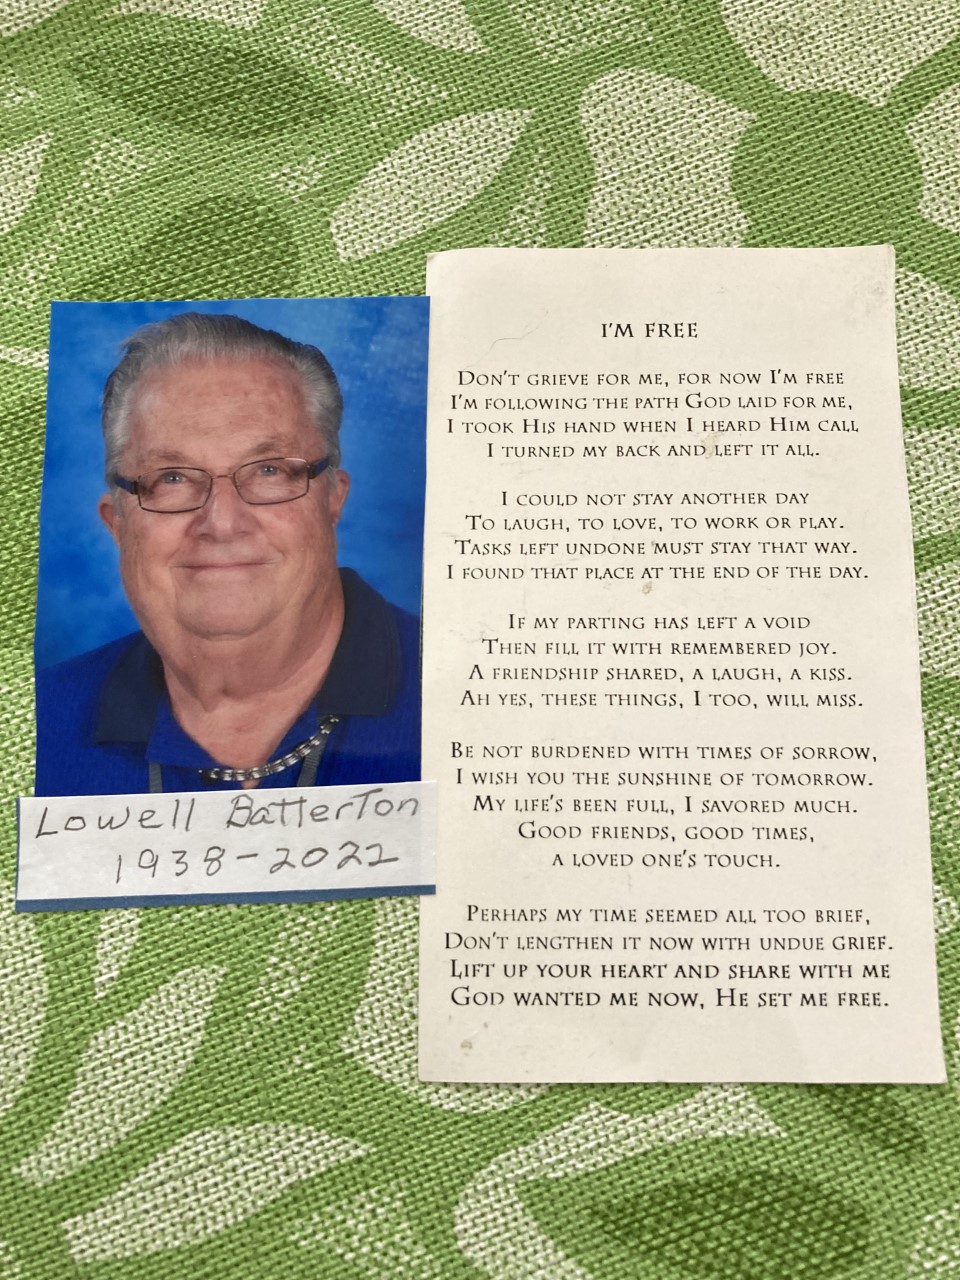 Lowell Batterton
1938-2022
I'M FREE
DON'T GRIEVE FOR ME, FOR NOW I'M FREE
I'M FOLLOWING THE PATH GOD LAID FOR ME,
I TOOK HIS HAND WHEN I HEARD HIM CALL
I TURNED MY BACK AND LEFT IT ALL.
I COULD NOT STAY ANOTHER DAY
TO LAUGH, TO LOVE, TO WORK OR PLAY.
TASKS LEFT UNDONE MUST STAY THAT WAY.
I FOUND THAT PLACE AT THE END OF THE DAY.
IF MY PARTING HAS LEFT A VOID
THEN FILL IT WITH REMEMBERED JOY.
A FRIENDSHIP SHARED, A LAUGH, A KISS.
AH YES, THESE THINGS, I TOO, WILL MISS.
BE NOT BURDENED WITH TIMES OF SORROW,
I WISH YOU THE SUNSHINE OF TOMORROW.
MY LIFE'S BEEN FULL, I SAVORED MUCH.
GOOD FRIENDS, GOOD TIMES,
A LOVED ONE'S TOUCH.
PERHAPS MY TIME SEEMED ALL TOO BRIEF,
DON'T LENGTHEN IT NOW WITH UNDUE GRIEF.
LIFT UP YOUR HEART AND SHARE WITH ME
GOD WANTED ME NOW, HE SET ME FREE.